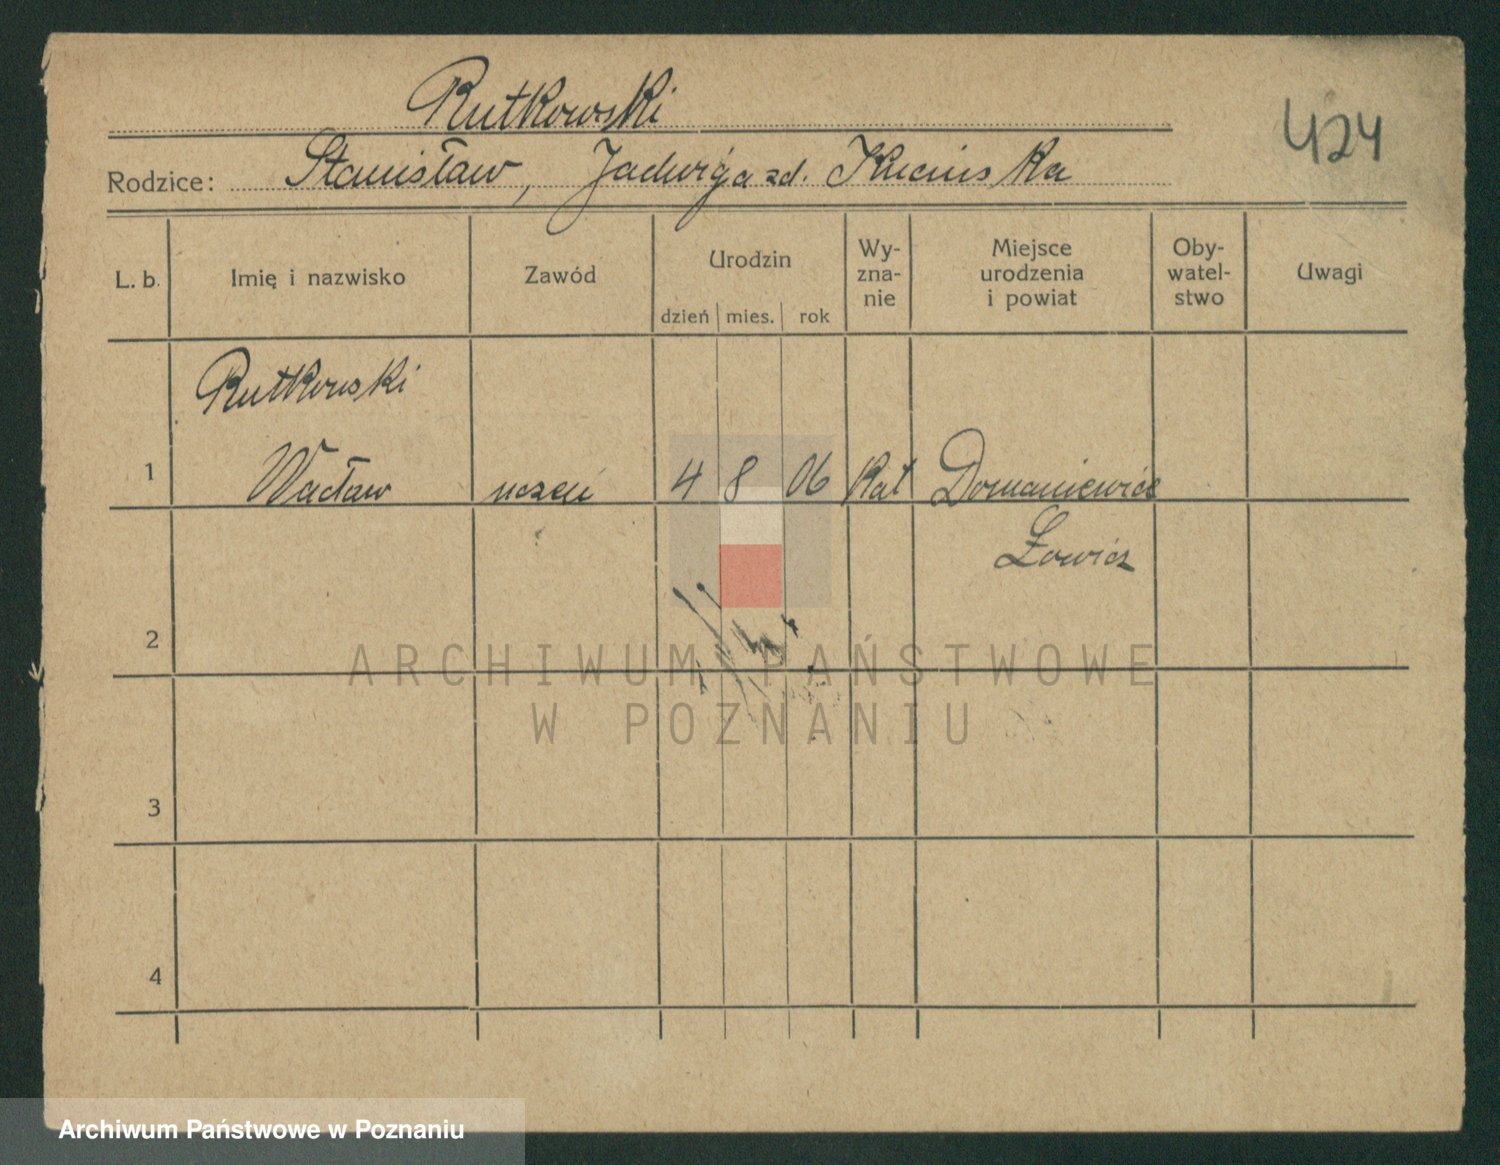 Rutkowski
424
Rodzice: Stanisław, Jadwiga zd.
L. b. Imię i nazwisko Zawód Urodzin dzień mies. rok Wy-zna-nie Miejsce urodzenia i powiat Oby-watel-stwo Uwagi
Rutkowski
1 Wacław uczeń 4 8 06 Kat Domaniewice
Łowicz
2
ARCHIWUM PAŃSTWOWE
W POZNANIU
3
4
Archiwum Państwowe w Poznaniu